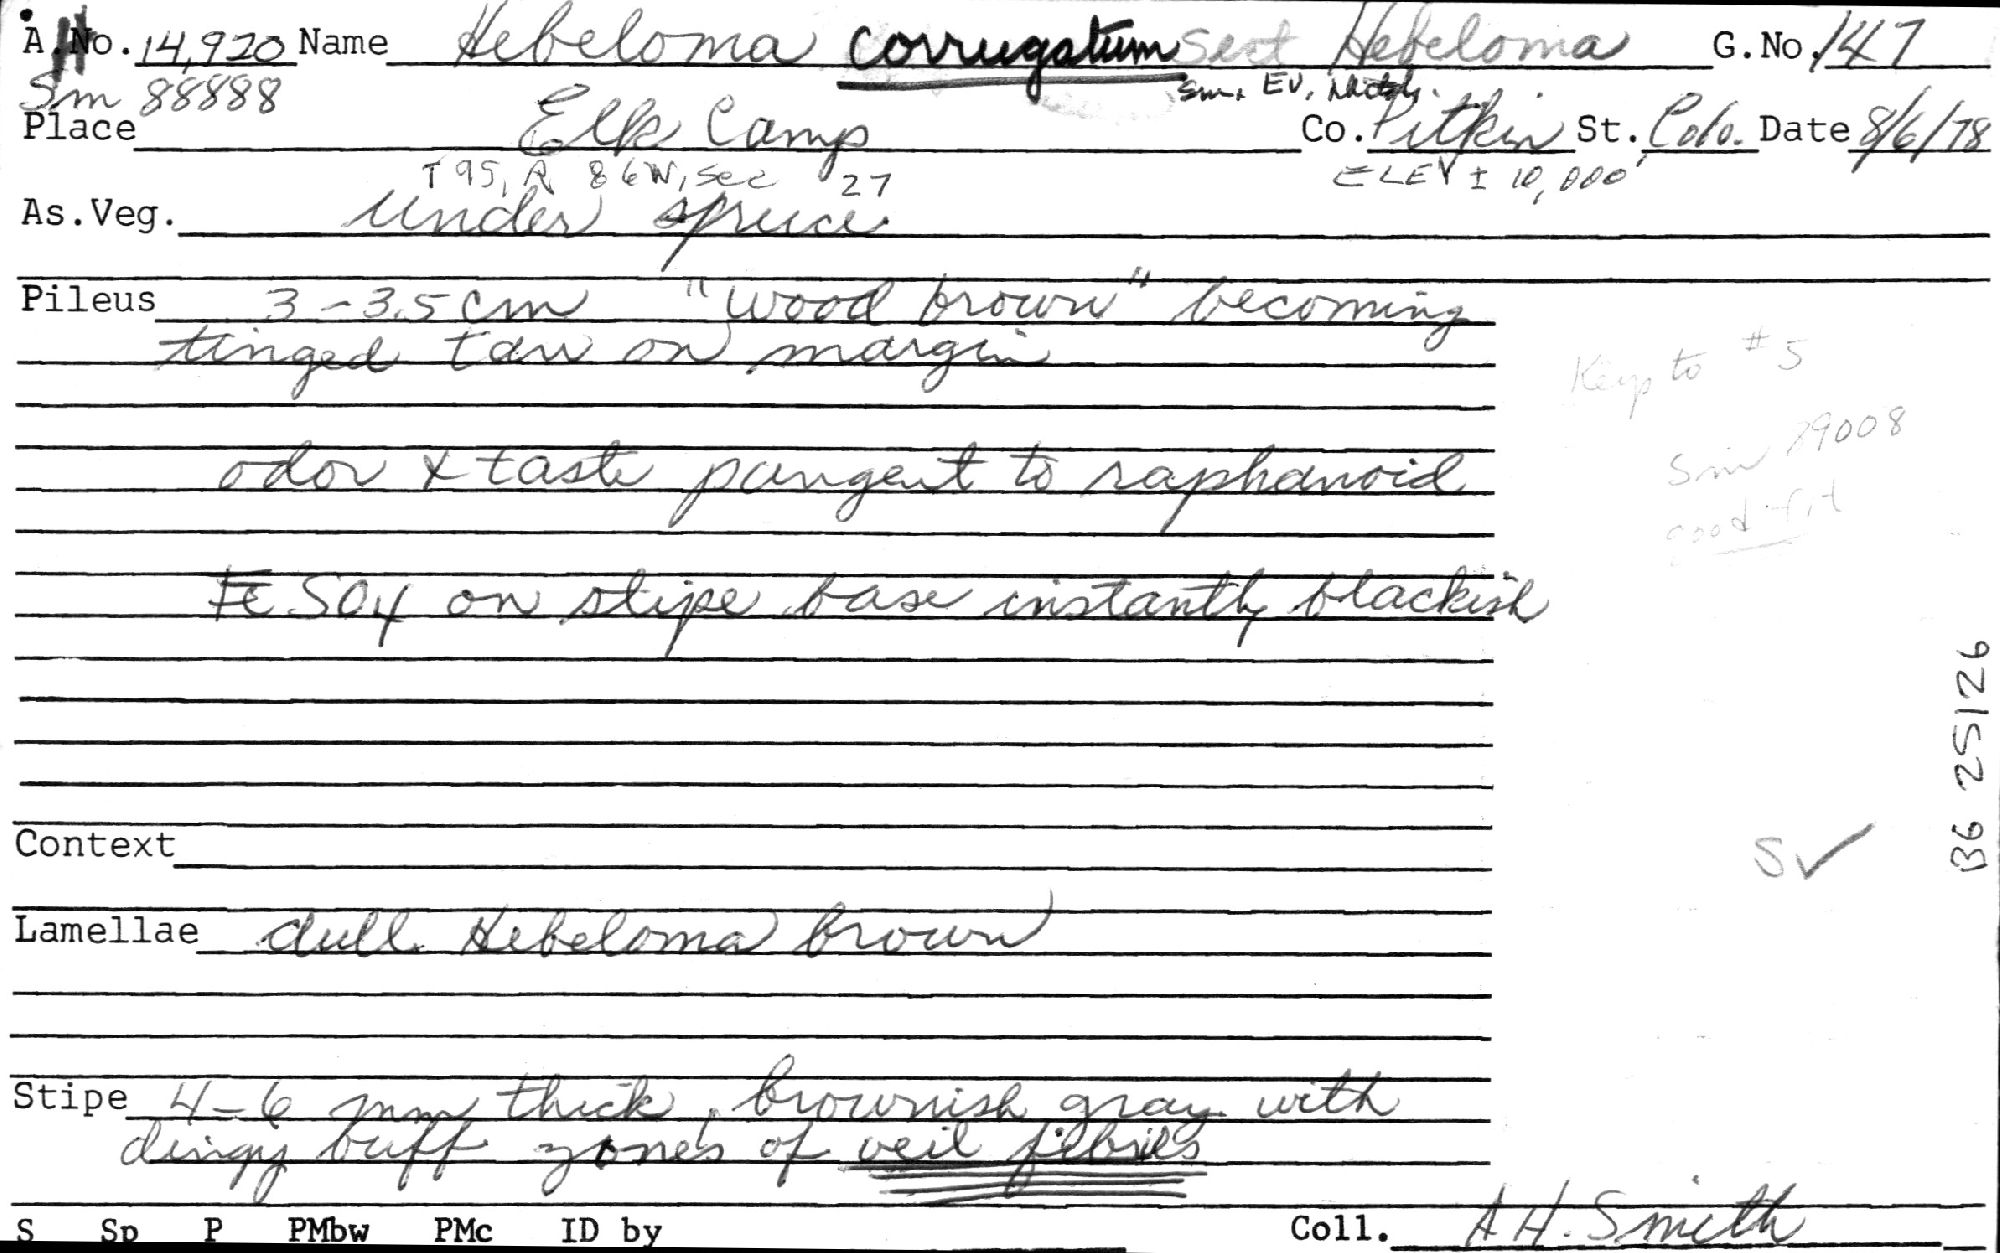 A.No. 14,920 Name Hebeloma corrugatum Sect Hebeloma G.No. 147
Sm 88888 Sm., EV, Mitch.
Place Elk Camp Co. Pitkin St. Colo. Date 8/6/78
T 9S, R 86W, sec 27 ELEV ± 10,000'
As.Veg. Under spruce
Pileus 3-3.5 cm "wood brown" becoming
tinged tan on margin
Key to #5
odor & taste pungent to raphanoid
Sm 79008
good fit
FeSO4 on stipe base instantly blackish
BG 25126
Context
S✓
Lamellae dull Hebeloma brown
Stipe 4-6 mm thick, brownish gray with
dingy buff zones of veil fibrils
S Sp P PMbw PMc ID by Coll. A H. Smith